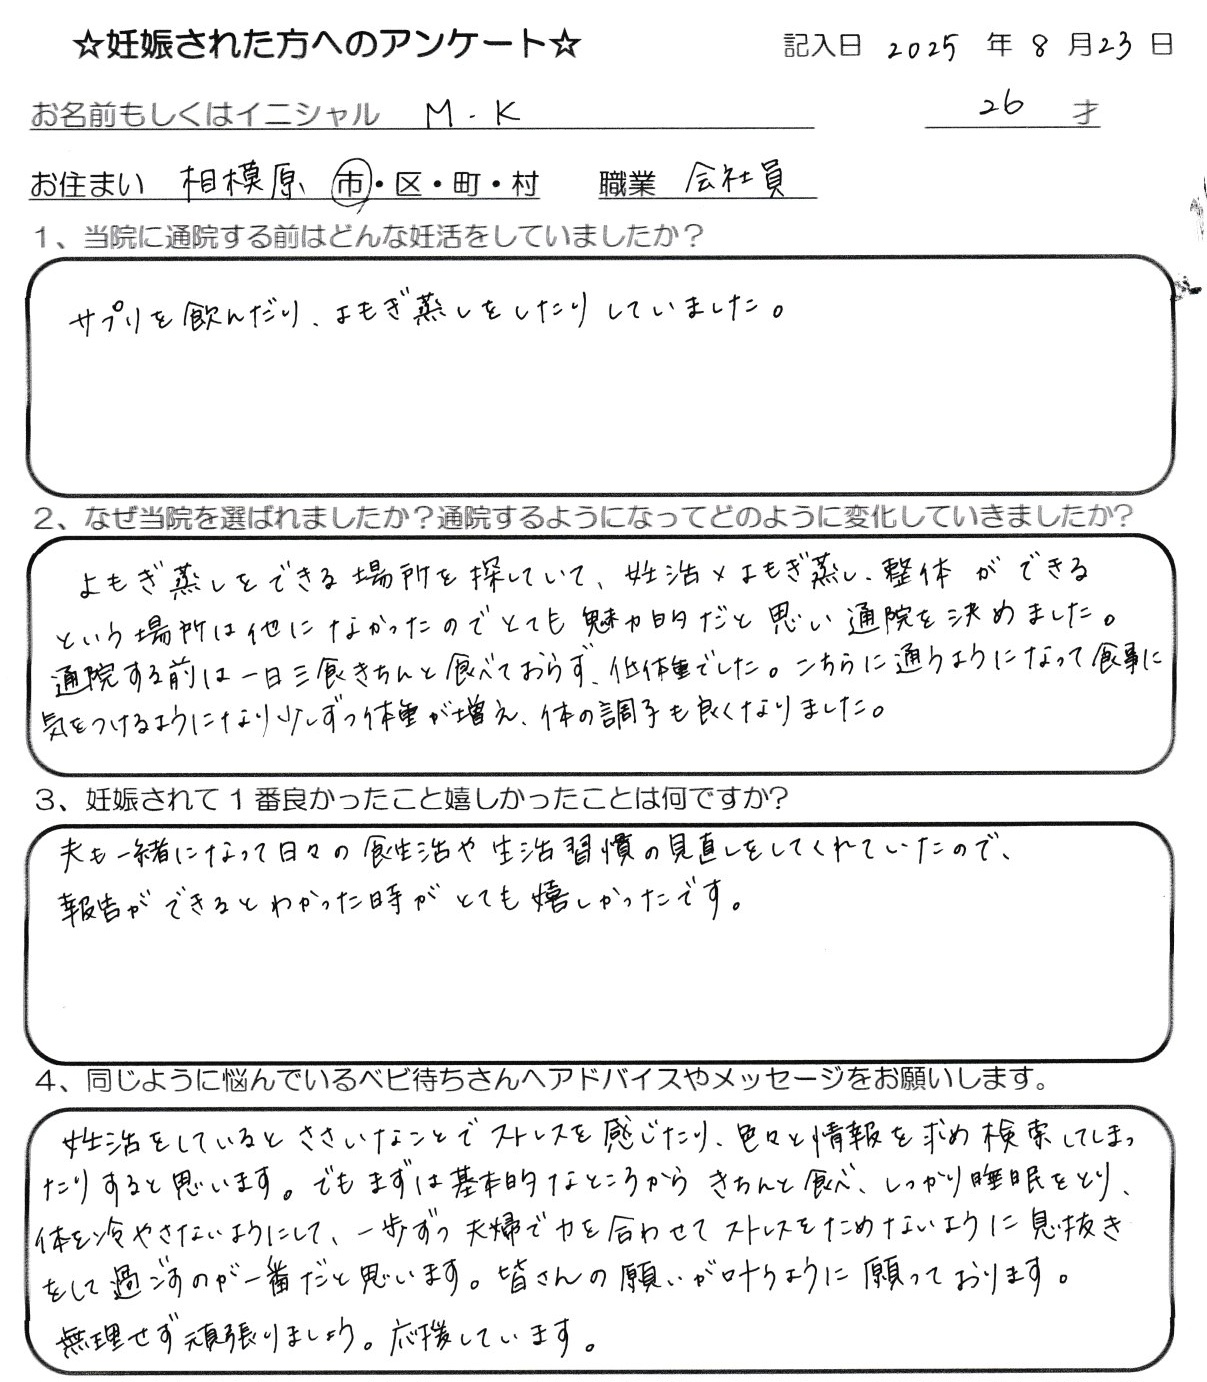 ☆妊娠された方へのアンケート☆ 記入日 2025 年 8 月 23 日
お名前もしくはイニシャル M.K 26 才
お住まい 相模原 市・区・町・村 職業 会社員
1、当院に通院する前はどんな妊活をしていましたか？
サプリを飲んだり、よもぎ蒸しをしたりしていました。
2、なぜ当院を選ばれましたか？通院するようになってどのように変化していきましたか？
よもぎ蒸しをできる場所を探していて、妊活×よもぎ蒸し、整体ができる
という場所は他になかったのでとても魅力的だと思い通院を決めました。
通院する前は一日三食きちんと食べておらず、低体重でした。こちらに通うようになって食事に
気をつけるようになり少しずつ体重が増え、体の調子も良くなりました。
3、妊娠されて1番良かったこと嬉しかったことは何ですか？
夫も一緒になって日々の食生活や生活習慣の見直しをしてくれていたので、
報告ができるとわかった時がとても嬉しかったです。
4、同じように悩んでいるベビ待ちさんへアドバイスやメッセージをお願いします。
妊活をしているとささいなことでストレスを感じたり、色々と情報を求め検索してしまっ
たりすると思います。でもまずは基本的なところからきちんと食べ、しっかり睡眠をとり、
体を冷やさないようにして、一歩ずつ夫婦で力を合わせてストレスをためないように息抜き
をして過ごすのが一番だと思います。皆さんの願いが叶うように願っております。
無理せず頑張りましょう。応援しています。